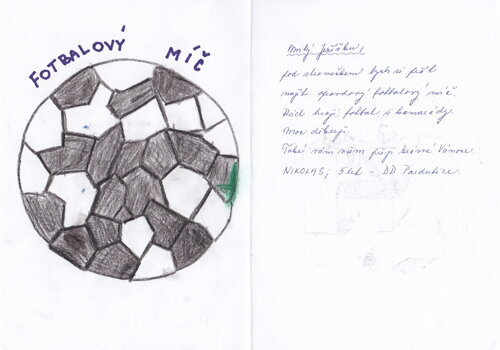 FOTBALOVÝ MÍČ
Milý Ježíšku!
pod stromečkem bych si přál
najít opravdový fotbalový míč.
Rád hraji fotbal s kamarády.
Moc děkuji.
Také vám všem přeji krásné Vánoce.
NIKOLAS, 5 let - DD Pardubice.